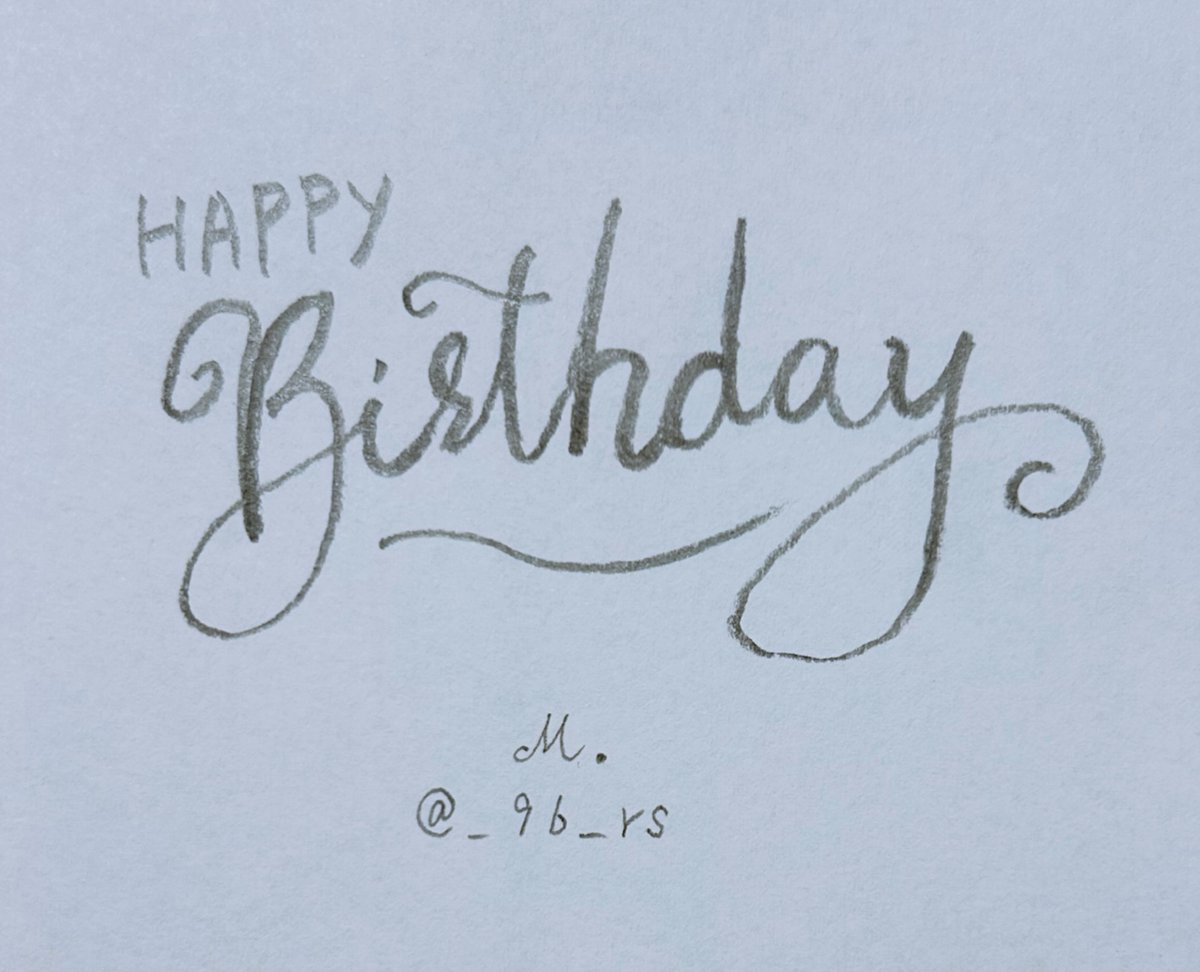 HAPPY
Birthday
M.
@_96_rs